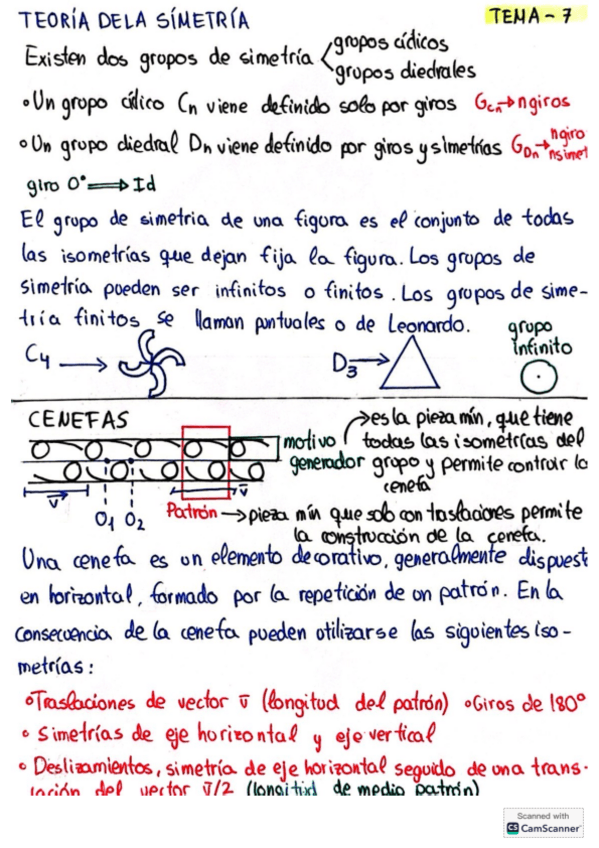 TEORÍA DE LA SÍMETRÍA
TEMA - 7
Existen dos grupos de simetría
grupos cíclicos
grupos diedrales
• Un grupo cíclico Cn viene definido solo por giros GCn → n giros
• Un grupo diedral Dn viene definido por giros y simetrías GDn → n giro
n simet
giro 0° ⟹ Id
El grupo de simetria de una figura es el conjunto de todas
las isometrías que dejan fija la figura. Los grupos de
simetría pueden ser infinitos o finitos. Los grupos de sime-
tría finitos se llaman puntuales o de Leonardo.
C4 →
D3 →
grupo
infinito
CENEFAS
motivo
generador
→ es la pieza mín, que tiene
todas las isometrías del
grupo y permite contruir la
cenefa
v
v
O1 O2
Patrón → pieza mín que solo con traslaciones permite
la construcción de la cenefa.
Una cenefa es un elemento decorativo, generalmente dispuest
en horizontal, formado por la repetición de un patrón. En la
consecuencia de la cenefa pueden utilizarse las siguientes iso-
metrías:
• Traslaciones de vector v̄ (longitud del patrón) • Giros de 180°
• Simetrías de eje horizontal y eje vertical
• Deslizamientos, simetría de eje horizontal seguido de una trans-
lación del vector v̄/2 (longitud de medio patrón)
Scanned with
CS CamScanner